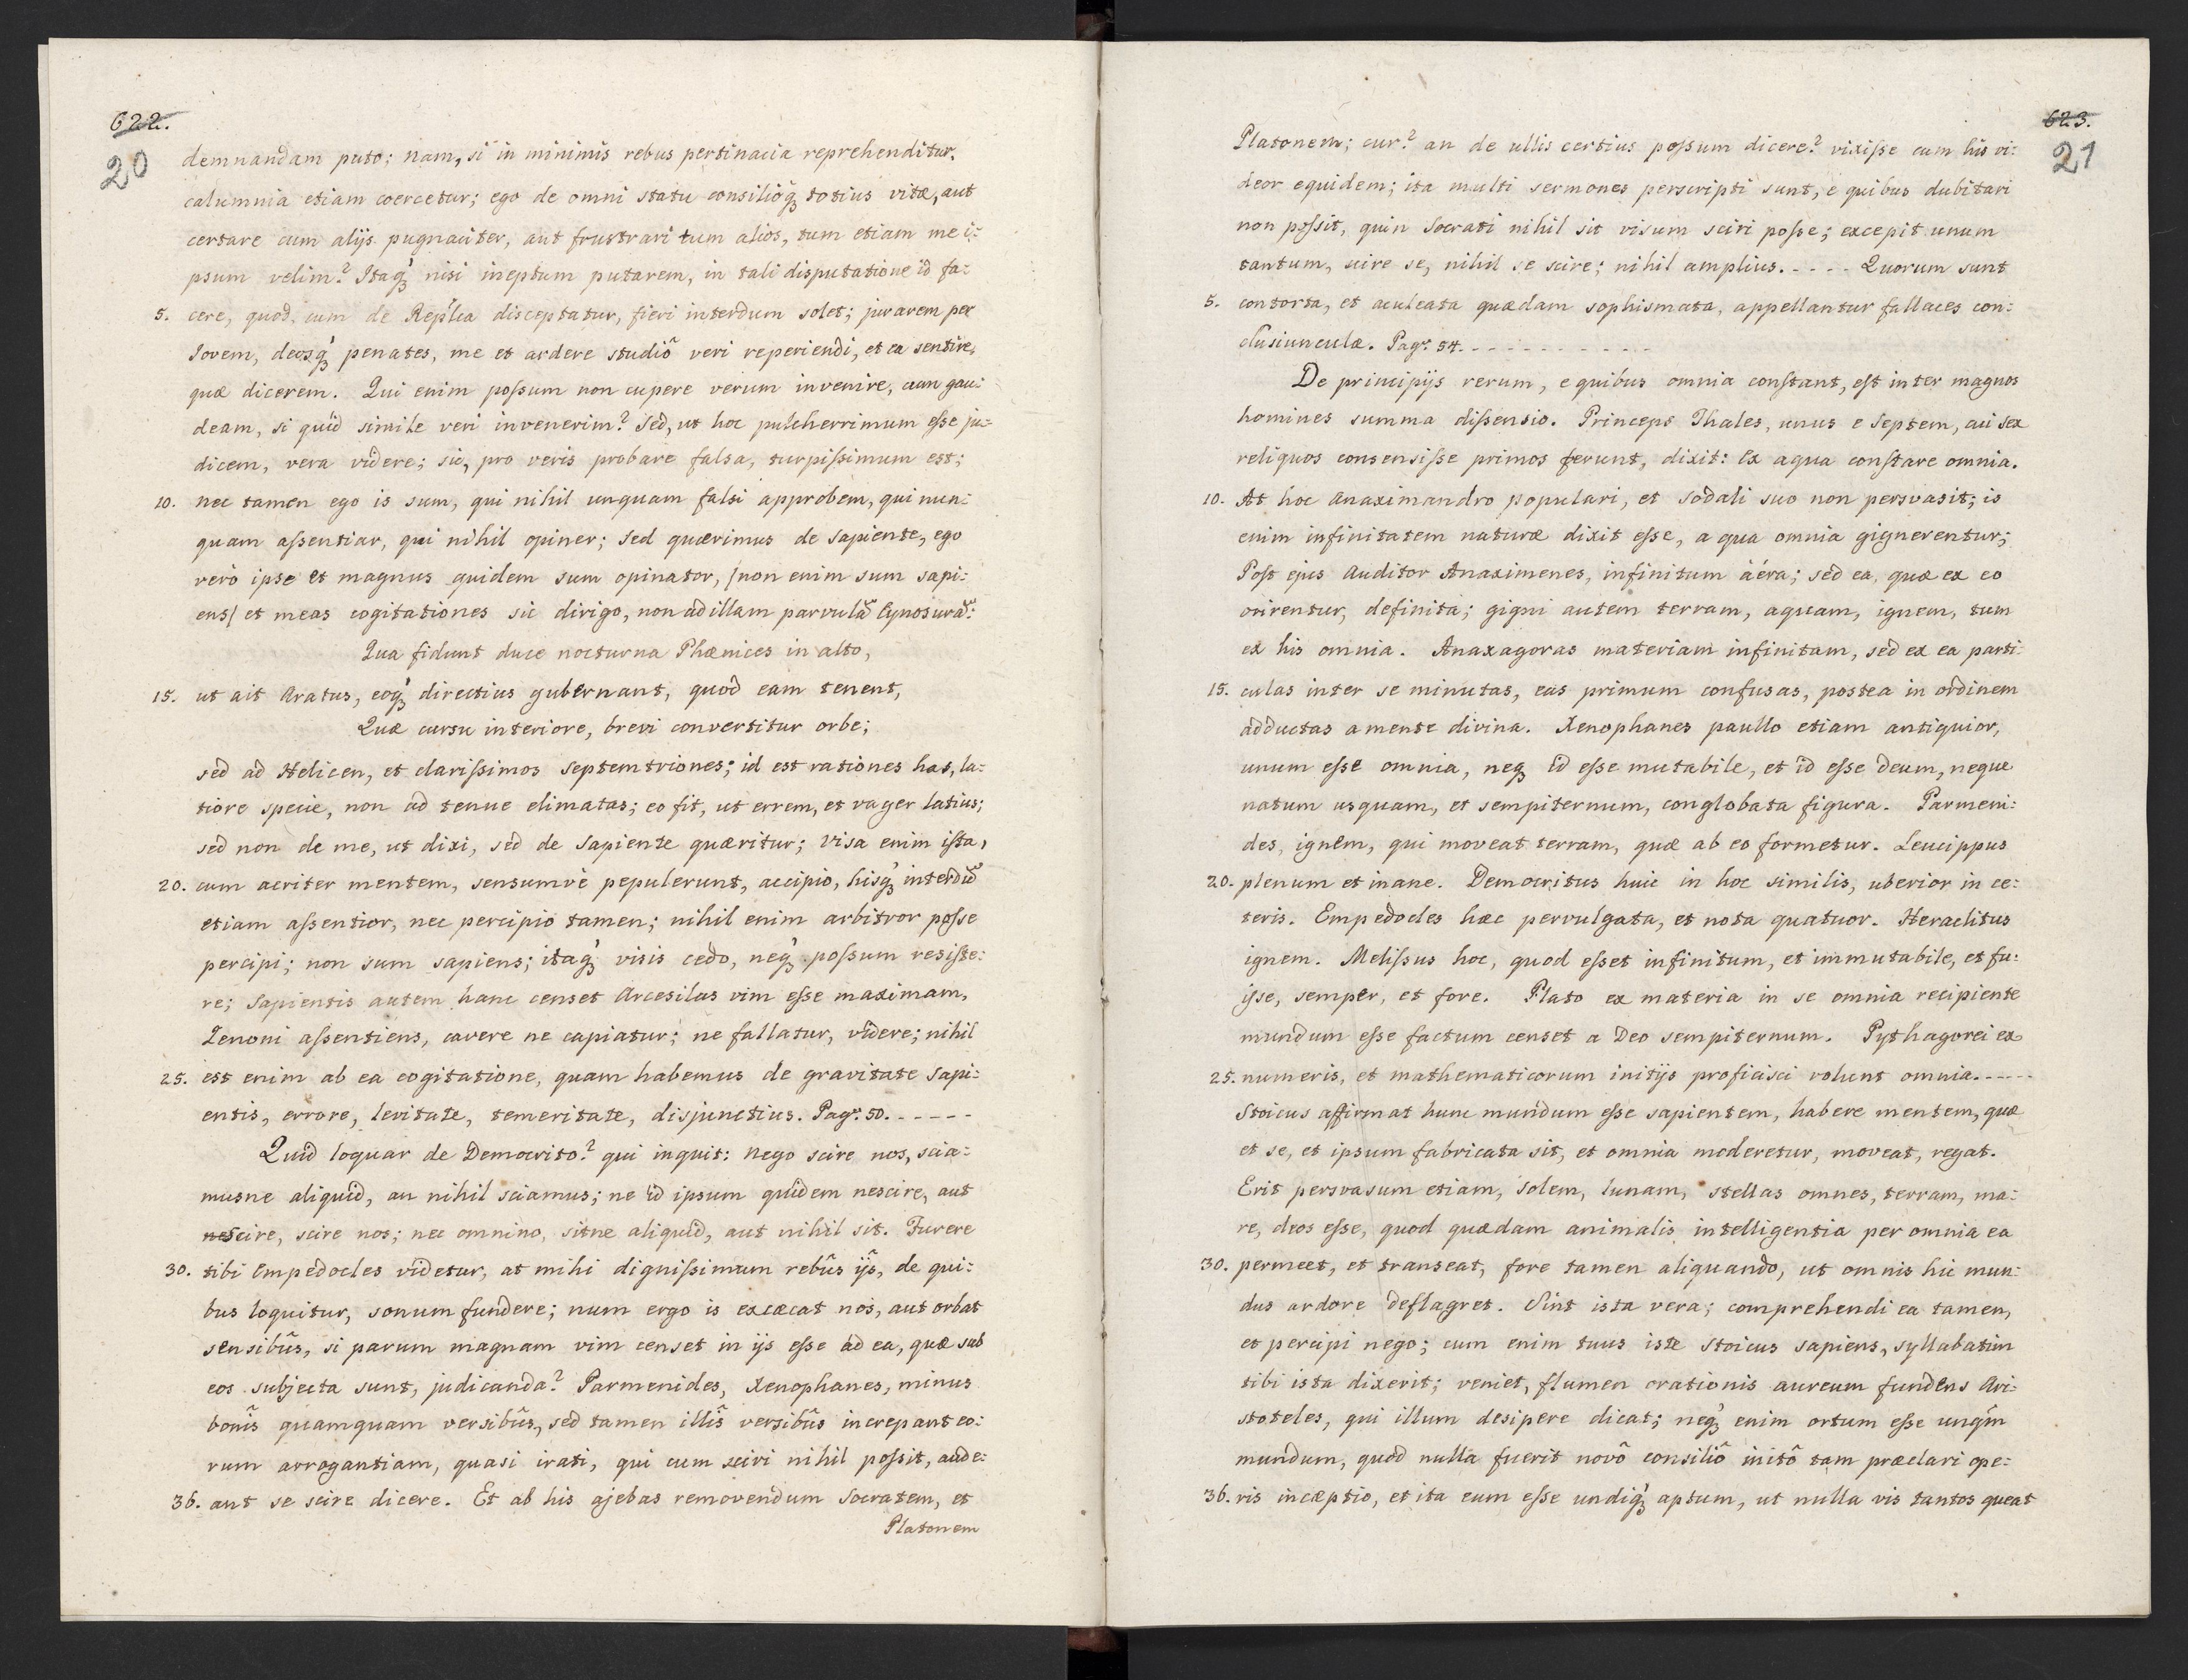 622.
20
demnandam puto; nam, si in minimis rebus pertinacia reprehenditur,
calumnia etiam coercetur; ego de omni statu consilioq́ꝫ totius vitæ, aut
certare cum alijs pugnaciter, aut frustrari tum alios, tum etiam me i:
psum velim? Itaq́ꝫ nisi ineptum putarem, in tali disputatione id fa:
5. cere, quod, cum de Rep̃lca disceptatur, fieri interdum solet; jurarem per
Jovem, deosq́ꝫ penates, me et ardere studiô veri reperiendi, et ea sentire,
quæ dicerem. Qui enim poſsum non cupere verum invenire, cum gau:
deam, si quid simile veri invenerim? Sed, ut hoc pulcherrimum eſse ju:
dicem, vera videre; sic, pro veris probare falsa, turpiſsimum est;
10. nec tamen ego is sum, qui nihil unquam falsi approbem, qui nun:
quam aſsentiar, qui nihil opiner; sed quærimus de sapiente, ego
verò ipse et magnus quidem sum opinator, /non enim sum sapi:
ens/ et meas cogitationes sic dirigo, non ad illam parvulã Cynosurã:
Qua fidunt duce nocturna Phænices in alto,
15. ut ait Aratus, eoq́ꝫ directius gubernant, quod eam tenent,
Quæ cursu interiore, brevi convertitur orbe;
sed ad Helicen, et clariſsimos Septemtriones; id est rationes has, la:
tiore specie, non ad tenue elimatas; eo fit, ut errem, et vager latius;
sed non de me, ut dixi, sed de Sapiente quæritur; Visa enim iſta,
20. cum acriter mentem, sensumvè pepulerunt, accipio, hisq́ꝫ interdũ
etiam aſsentior, nec percipio tamen; nihil enim arbitror poſse
percipi; non sum sapiens; itaq́ꝫ visis cedo, neq́ꝫ poſsum resiſte:
re; Sapientis autem hanc censet Arcesilas vim eſse maximam,
Zenoni aſsentiens, cavere ne capiatur; ne fallatur, videre; nihil
25. est enim ab ea cogitatione, quam habemus de gravitate sapi:
entis, errore, levitate, temeritate, disjunctius. Pag. 50. - - - - - -
Quid loquar de Democrito? qui inquit: Nego scire nos, scia:
musne aliquid, an nihil sciamus; ne id ipsum quidem nescire, aut
nescire, scire nos; nec omnino, sitne aliquid, aut nihil sit. Furere
30. tibi Empedocles videtur, at mihi digniſsimum rebûs ijs, de qui:
bus loquitur, sonum fundere; num ergo is excæcat nos, aut orbat
sensibûs, si parum magnam vim censet in ijs eſse ad ea, quæ sub
eos subjecta sunt, judicanda? Parmenides, Xenophanes, minus
bonîs quamquam versibûs, sed tamen illîs versibûs increpant eo:
rum arrogantiam, quasi irati, qui cum sciri nihil poſsit, aude:
36. ant se scire dicere. Et ab his ajebas removendum Socratem, et
Platonem
623.
21
Platonem; cur? an de ullis certius poſsum dicere? vixiſse cum his vi:
deor equidem; ita multi sermones perscripti sunt, e quibus dubitari
non poſsit, quin Socrati nihil sit visum sciri poſse; excepit unum
tantum, scire se, nihil se scire; nihil amplius. - - - - Quorum sunt
5. contorta, et aculeata quædam sophismata, appellantur fallaces con:
clusiunculæ. Pag. 54. - - - - - - - - - - - -
De principijs rerum, e quibus omnia conſtant, eſt inter magnos
homines summa diſsensio. Princeps Thales, unus e Septem, cui sex
reliquos consensiſse primos ferunt, dixit: Ex aqua conſtare omnia.
10. At hoc Anaximandro populari, et sodali suo non persvasit; is
enim infinitatem naturæ dixit eſse, a qua omnia gignerentur;
Poſt ejus Auditor Anaximenes, infinitum äéra; sed ea, quæ ex eo
orirentur, definita; gigni autem terram, aquam, ignem, tum
ex his omnia. Anaxagoras materiam infinitam, sed ex ea parti:
15. culas inter se minutas, eas primum confusas, postea in ordinem
adductas a mente divina. Xenophanes paullo etiam antiquior,
unum eſse omnia, neqꝫ id eſse mutabile, et id eſse Deum, neque
natum usquam, et sempiternum, conglobata figura. Parmeni:
des, ignem, qui moveat terram, quæ ab eo formetur. Leucippus
20. plenum et inane. Democritus huic in hoc similis, uberior in ce:
teris. Empedocles hæc pervulgata, et nota quatuor. Heraclitus
ignem. Meliſsus hoc, quod eſset infinitum, et immutabile, et fu:
iſse, semper, et fore. Plato ex materia in se omnia recipiente
mundum eſse factum censet a Deo sempiternum. Pythagorei ex
25. numeris, et mathematicorum initijs proficisci volunt omnia. - - - - -
Stoicus affirmat hunc mundum eſse sapientem, habere mentem, quæ
et se, et ipsum fabricata sit, et omnia moderetur, moveat, regat.
Erit persvasum etiam, Solem, lunam, stellas omnes, terram, ma:
re, deos eſse, quod quædam animalis intelligentia per omnia ea
30. permeet, et transeat, fore tamen aliquando, ut omnis hic mun:
dus ardore deflagret. Sint ista vera; comprehendi ea tamen,
et percipi nego; cum enim tuus iste Stoicus sapiens, syllabatim
tibi ista dixerit; veniet, flumen orationis aureum fundens Ari:
stoteles, qui illum desipere dicat; neq́ꝫ enim ortum eſse unq́m
mundum, quod nulla fuerit novô consiliô initô tam præclari ope:
36. ris incæptio, et ita eum eſse undiq́ꝫ aptum, ut nulla vis tantos queat